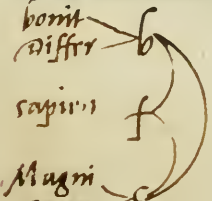 bonit b
Differ
sapien f
Magni